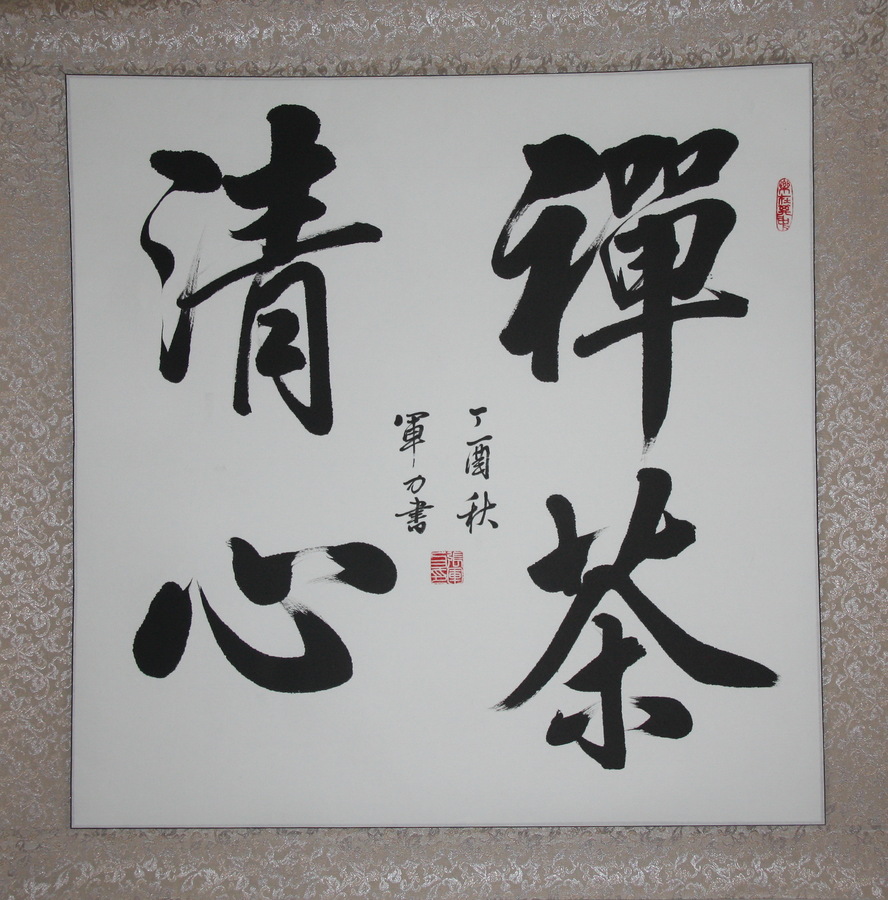 禪茶
清心
丁酉秋
軍力書